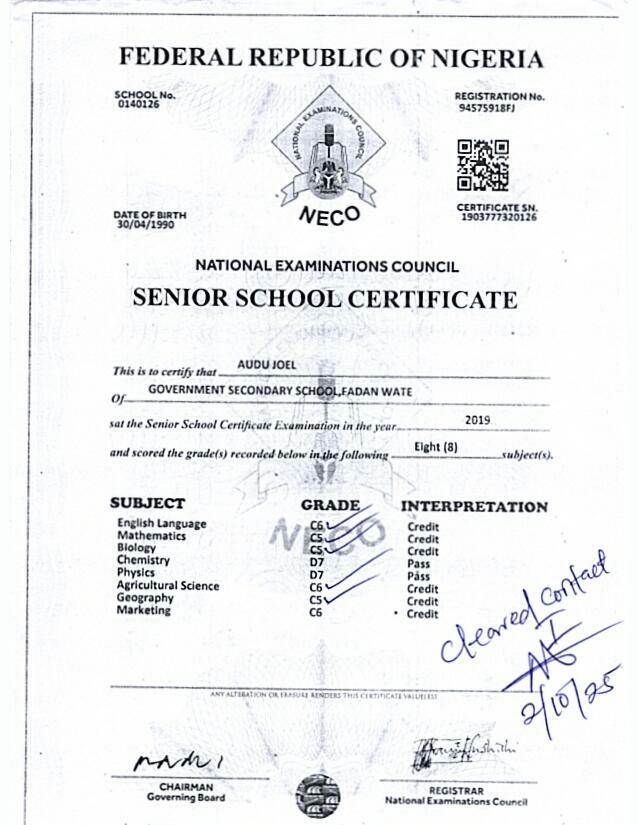 FEDERAL REPUBLIC OF NIGERIA
SCHOOL No.
0140126
REGISTRATION No.
94575918FJ
NATIONAL EXAMINATIONS COUNCIL
NECO
DATE OF BIRTH
30/04/1990
CERTIFICATE SN.
1903777320126
NATIONAL EXAMINATIONS COUNCIL
SENIOR SCHOOL CERTIFICATE
This is to certify that AUDU JOEL
Of GOVERNMENT SECONDARY SCHOOL,FADAN WATE
sat the Senior School Certificate Examination in the year 2019
and scored the grade(s) recorded below in the following Eight (8) subject(s).
SUBJECT GRADE INTERPRETATION
English Language C6 Credit
Mathematics C5 Credit
Biology C5 Credit
Chemistry D7 Pass
Physics D7 Pass
Agricultural Science C6 Credit
Geography C5 Credit
Marketing C6 Credit
NECO
Cleared contact
2/10/25
ANY ALTERATION OR ERASURE RENDERS THIS CERTIFICATE VALUELESS
CHAIRMAN
Governing Board
REGISTRAR
National Examinations Council